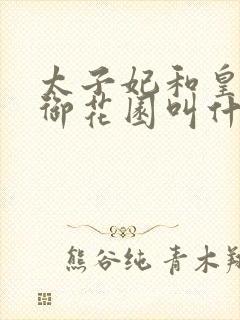 太子妃和皇
御花园叫什
熊谷纯 青木翔